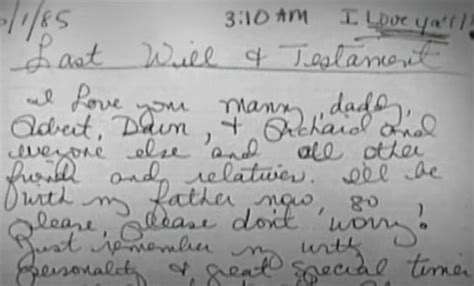 /1/85 3:10 AM I Love ya'll!
Last Will & Testament
I Love you mama, daddy,
Robert, Dawn, & Richard and
everyone else and all other
friends and relatives. I'll be
with my father now, so
please, please don't worry!
Just remember my witty
personality & great special times